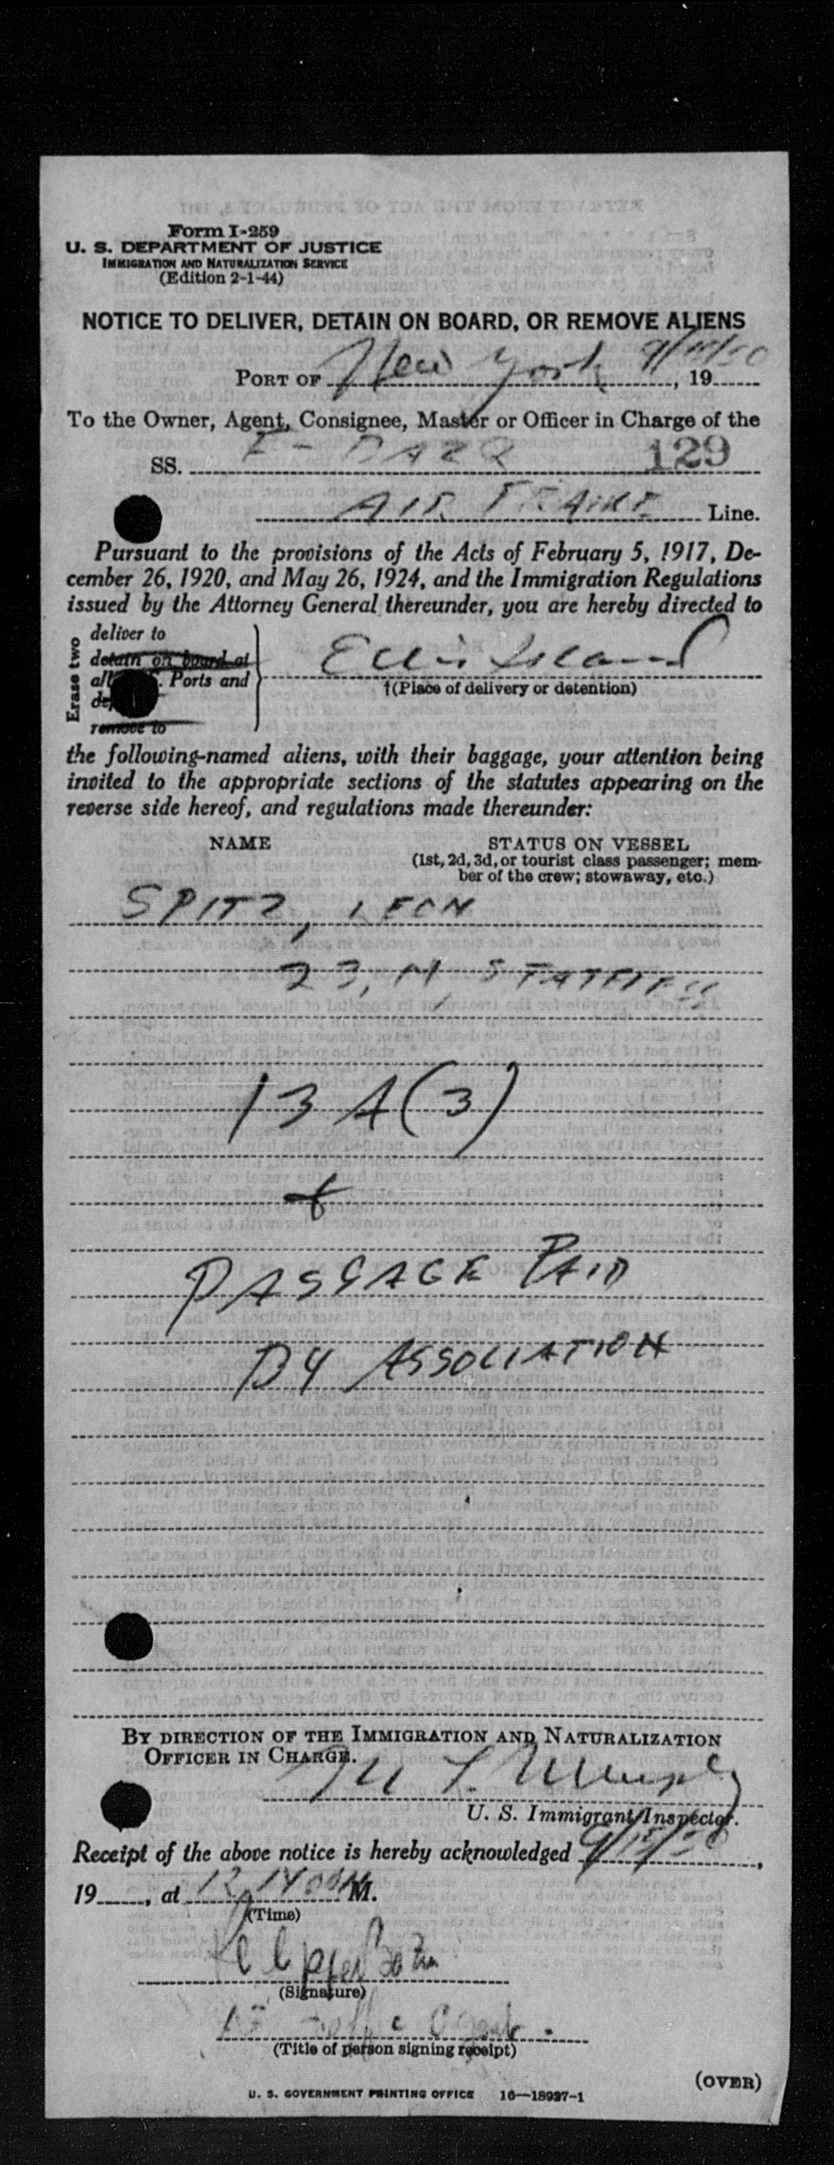 Form I-259
U. S. DEPARTMENT OF JUSTICE
IMMIGRATION AND NATURALIZATION SERVICE
(Edition 2-1-44)
NOTICE TO DELIVER, DETAIN ON BOARD, OR REMOVE ALIENS
PORT OF New York, 19
To the Owner, Agent, Consignee, Master or Officer in Charge of the
SS. F- BAZQ 129
AIR FRANCE Line.
Pursuant to the provisions of the Acts of February 5, 1917, De-
cember 26, 1920, and May 26, 1924, and the Immigration Regulations
issued by the Attorney General thereunder, you are hereby directed to
Erase two
deliver to
detain on board at
all Ports and
remove to
Ellis Island
†(Place of delivery or detention)
the following-named aliens, with their baggage, your attention being
invited to the appropriate sections of the statutes appearing on the
reverse side hereof, and regulations made thereunder:
NAME STATUS ON VESSEL
(1st, 2d, 3d, or tourist class passenger; mem-
ber of the crew; stowaway, etc.)
SPITZ, LEON
23, M STATELESS
13 A(3)
+
PASSAGE PAID
BY ASSOCIATION
BY DIRECTION OF THE IMMIGRATION AND NATURALIZATION
OFFICER IN CHARGE.
Murphy
U. S. Immigrant Inspector.
Receipt of the above notice is hereby acknowledged
19, at M.
(Time)
(Signature)
AF Traffic Agent.
(Title of person signing receipt)
(OVER)
U. S. GOVERNMENT PRINTING OFFICE 16—18937-1